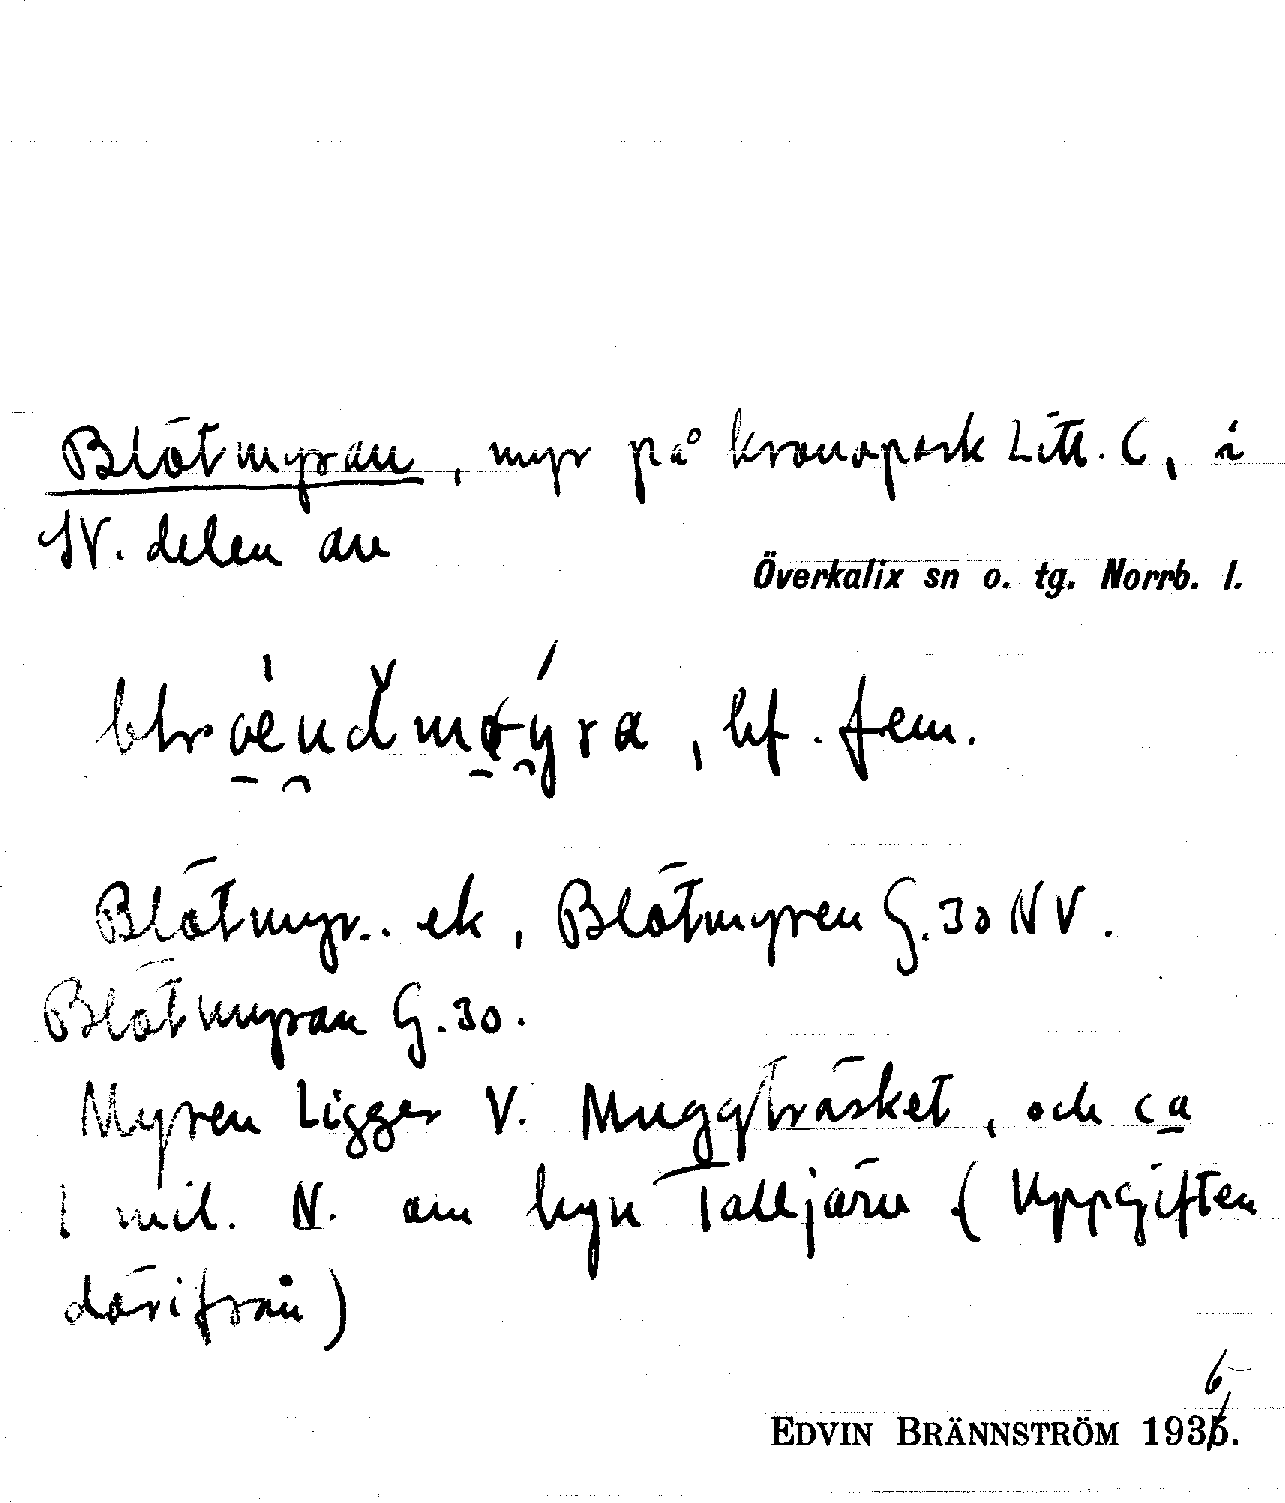 Blötmyran, myr på kronopark Litt. C, i
SV. delen av
Överkalix sn o. tg. Norrb. l.
, bf. fem.
Blötmyr.. ek, Blötmyren G.30 NV.
Blötmyran G.30.
Myren Ligger V. Muggträsket, och ca
1 mil. N. om byn Talljärv (Uppgiften
därifrån)
6
EDVIN BRÄNNSTRÖM 1935.